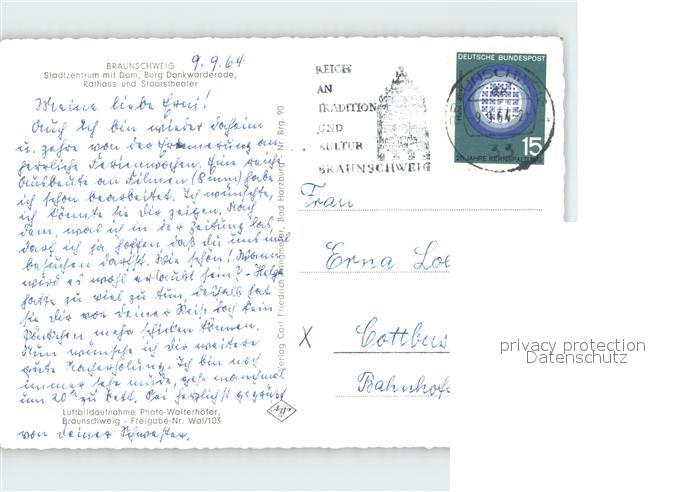 BRAUNSCHWEIG 9.9.64
Stadtzentrum mit Dom, Burg Dankwarderode,
Rathaus und Staatstheater
Meine liebe Erni!
Auch ich bin wieder daheim
u. zehre von der Erinnerung an
herrliche Ferienwochen. Eine reiche
Ausbeute an Filmen (8mm) habe
ich schon bearbeitet. Ich wünschte,
ich könnte sie dir zeigen. Nach
dem, was ich in der Zeitung las,
darf ich ja hoffen, daß du uns mal
besuchen darfst. Wie schön! Wann
wird es wohl erlaubt sein? - Helga
hatte zu viel zu tun, deshalb hat
sie dir vor deiner Reise doch kein
Päckchen mehr schicken können.
Nun wünsche ich dir weitere
gute Nacherholung. Ich bin noch
immer sehr müde, gehe manchmal
um 20 zu Bett. Sei herzlichst gegrüßt
Luftbildaufnahme Photo-Walterhöfer,
Braunschweig - Freigabe-Nr. Wal/103
von deiner Schwester.
Verlag Carl Friedrich Fangmeier, Bad Harzburg - Nr. Brg. 90
REICH
AN
TRADITION
UND
KULTUR
BRAUNSCHWEIG
DEUTSCHE BUNDESPOST
15
20 JAHRE KERNSPALTUNG
33
Frau
Erna
X Cottbus
Bahnhofs
Agfa
privacy protection
Datenschutz